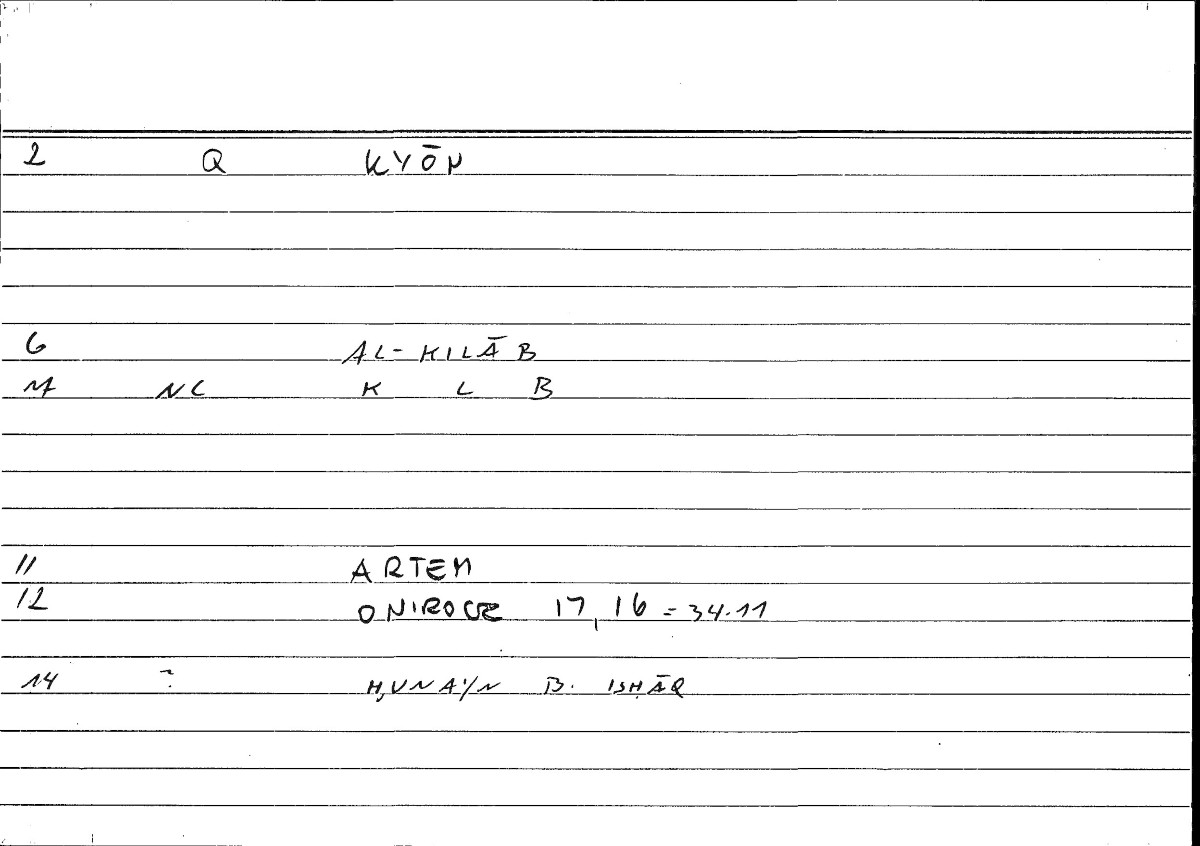 2 Q KYŌN
6 AL-KILĀB
NC K L B
11 ARTEM
12 ONIROCR 17,16 = 34.11
14 ? ḤUNAYN B. ISḤĀQ